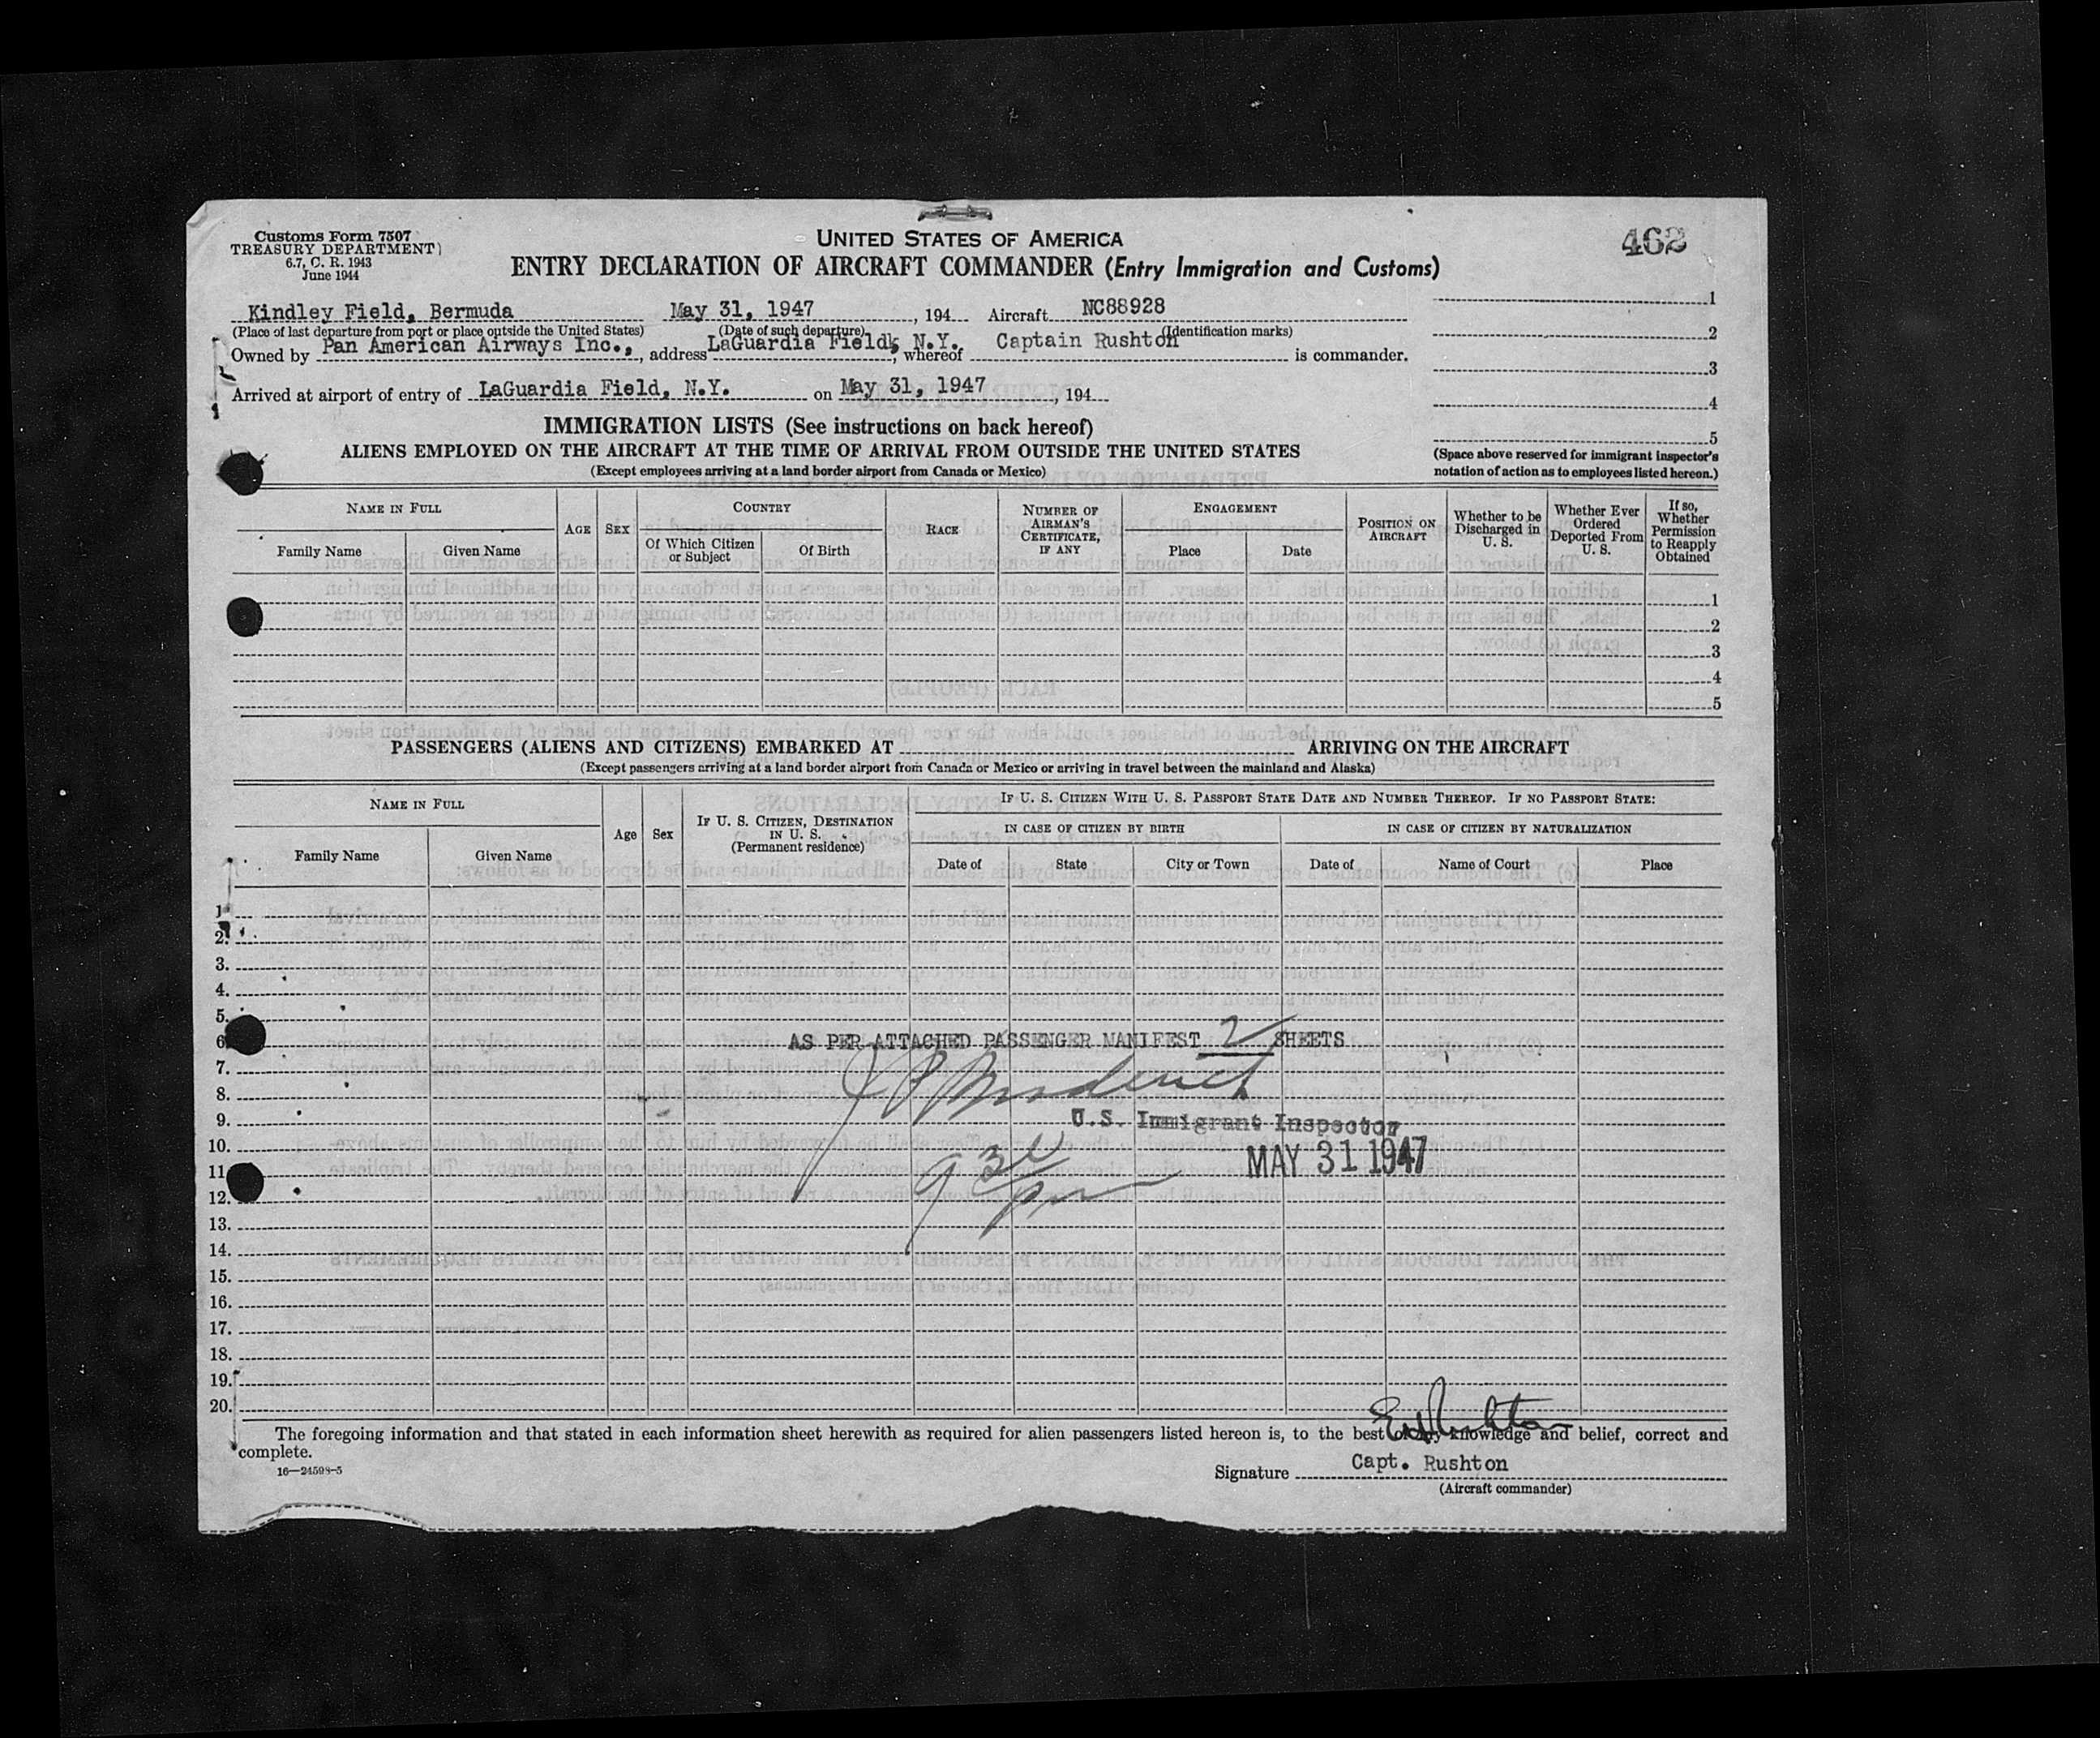 Customs Form 7507
TREASURY DEPARTMENT)
6.7, C. R. 1943
June 1944
UNITED STATES OF AMERICA
462
ENTRY DECLARATION OF AIRCRAFT COMMANDER (Entry Immigration and Customs)
Kindley Field, Bermuda May 31, 1947, 194 Aircraft NC88928
(Place of last departure from port or place outside the United States) (Date of such departure) (Identification marks)
Owned by Pan American Airways Inc., address LaGuardia Field, N.Y. whereof Captain Rushton is commander.
Arrived at airport of entry of LaGuardia Field, N.Y. on May 31, 1947, 194
1
2
3
4
5
(Space above reserved for immigrant inspector's
notation of action as to employees listed hereon.)
IMMIGRATION LISTS (See instructions on back hereof)
ALIENS EMPLOYED ON THE AIRCRAFT AT THE TIME OF ARRIVAL FROM OUTSIDE THE UNITED STATES
(Except employees arriving at a land border airport from Canada or Mexico)
NAME IN FULL
Family Name
Given Name
AGE
SEX
COUNTRY
Of Which Citizen
or Subject
Of Birth
RACE
NUMBER OF
AIRMAN'S
CERTIFICATE,
IF ANY
ENGAGEMENT
Place
Date
POSITION ON
AIRCRAFT
Whether to be
Discharged in
U. S.
Whether Ever
Ordered
Deported From
U. S.
If so,
Whether
Permission
to Reapply
Obtained
1
2
3
4
5
PASSENGERS (ALIENS AND CITIZENS) EMBARKED AT ARRIVING ON THE AIRCRAFT
(Except passengers arriving at a land border airport from Canada or Mexico or arriving in travel between the mainland and Alaska)
NAME IN FULL
Family Name
Given Name
Age
Sex
IF U. S. CITIZEN, DESTINATION
IN U. S.
(Permanent residence)
IF U. S. CITIZEN WITH U. S. PASSPORT STATE DATE AND NUMBER THEREOF. IF NO PASSPORT STATE:
IN CASE OF CITIZEN BY BIRTH
IN CASE OF CITIZEN BY NATURALIZATION
Date of
State
City or Town
Date of
Name of Court
Place
1
2.
3.
4.
5.
6
AS PER ATTACHED PASSENGER MANIFEST 2 SHEETS
7.
8.
9.
U.S. Immigrant Inspector
10.
MAY 31 1947
11
12.
13.
14.
15.
16.
17.
18.
19.
20.
The foregoing information and that stated in each information sheet herewith as required for alien passengers listed hereon is, to the best of my knowledge and belief, correct and
complete.
16—24598-5
Signature Capt. Rushton
(Aircraft commander)